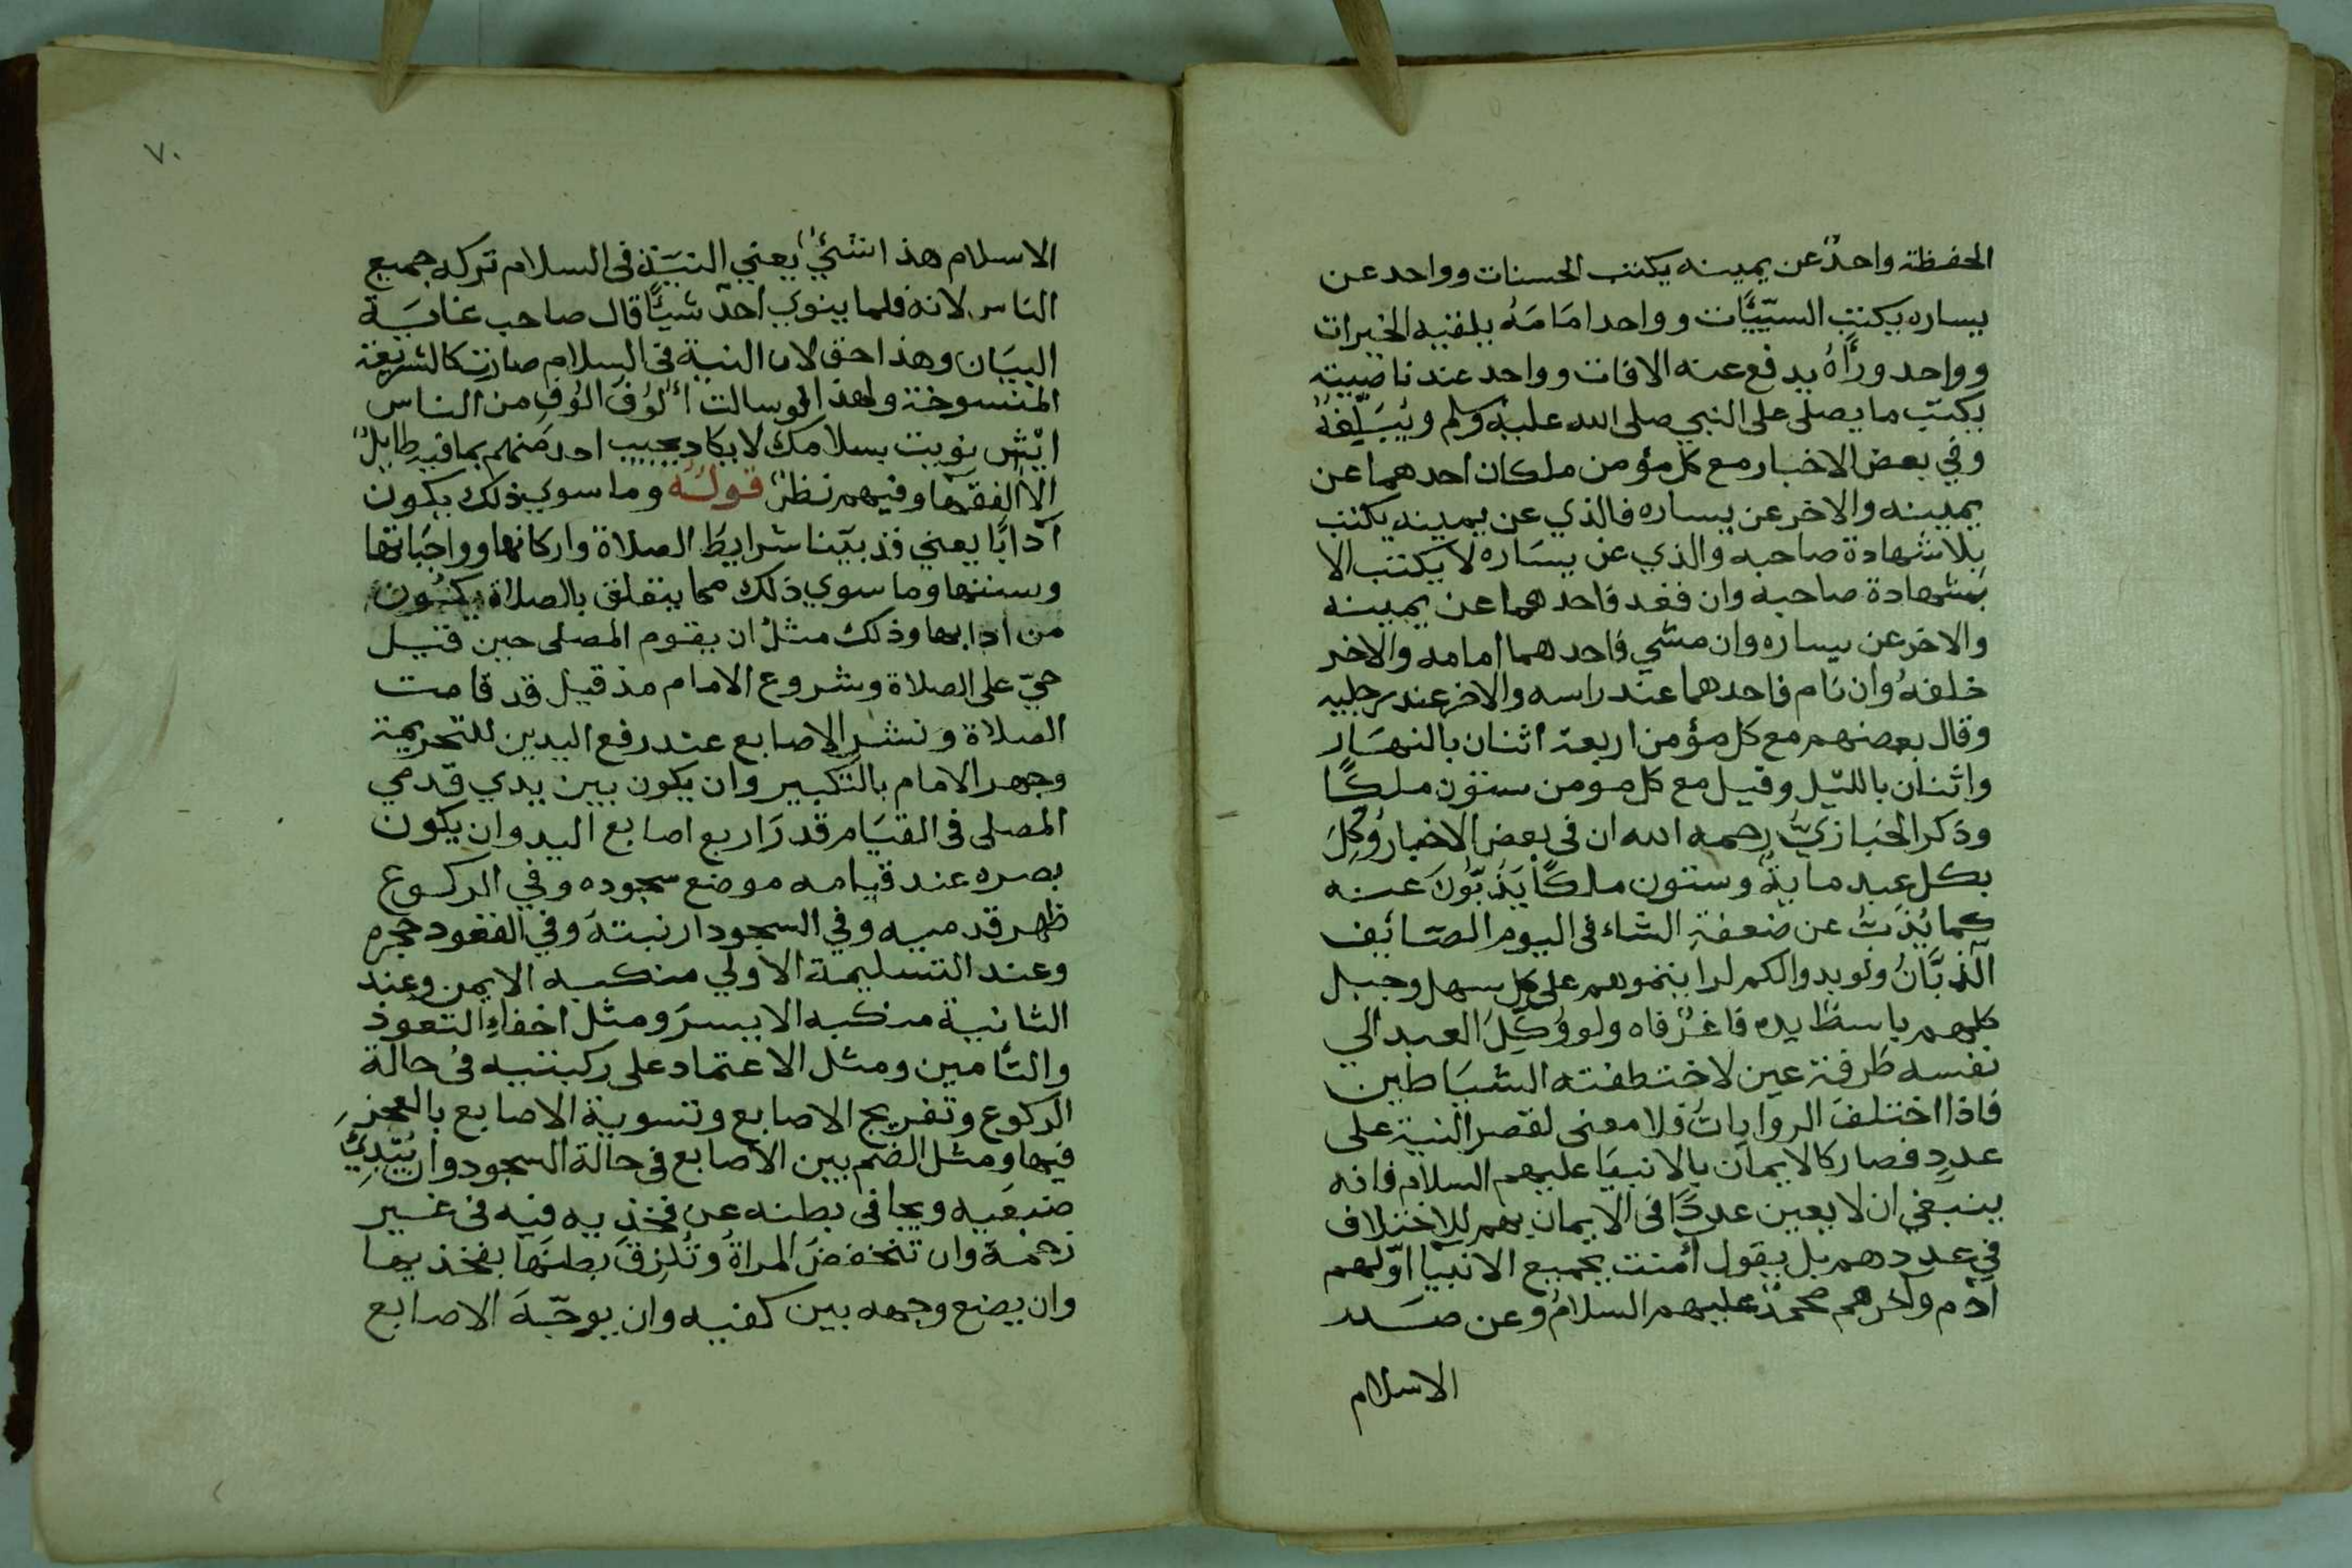 الحفظة واحدٌ عن يمينه يكتب الحسنات وواحد عن
يساره يكتب السيّئات وواحد امَامَهُ يلقنه الخيرات
وواحد ورأهُ يدفع عنه الافات وواحد عند ناصيته
يكتب ما يصلى على النبي صلى الله عليه وسلم ويُبَلّغهُ
وفي بعض الاخبار مع كل مؤمن ملكان احدهما عن
يمينه والاخر عن يساره فالذي عن يمينه يكتب
بلا شهادة صاحبه والذي عن يسَاره لا يكتب الا
بشهادة صاحبه وان قعد فاحدهما عن يمينه
والاخر عن يساره وان مشي فاحدهما امامه والاخر
خلفهُ وان نام فاحدهما عند راسه والاخر عند رجليه
وقال بعضهم مع كل مؤمن اربعة اثنان بالنهَار
واثنان بالليل وقيل مع كل مومن ستون ملكًا
وذكر الخبازيّ رحمه الله ان في بعض الاخبار وُكِلَ
بكل عبد ماية وستون ملكًا يَذبّونَ عنه
كما يُذَبّ عن ضعفةِ الشاء في اليوم الصّائف
الذبَّانُ ولو بدوا لكم لرايتموهم على كل سهل وجبل
كلهم باسط يده فاغرٌ فاه ولو وُكِلَ العبد الي
نفسه طرفة عين لاختطفته الشيَاطين
فاذا اختلفَ الرواياتُ فلا معنى لقصر النية على
عددٍ فصار كالايمان بالانبيَا عليهم السلام فانه
ينبغي ان لا يعين عددًا في الايمان بهم للاختلاف
في عددهم بل يقول أمنت بجميع الانبيا اوّلهم
ادم واخرهم محمدٌ عليهم السلامُ وعن صَدر
الاسلام
٧٠
الاسلام هذا شئٌ يعني النيَة في السلام تركه جميع
الناس لانه قلما ينوي احدٌ شيًا قال صاحب غايَة
البيَان وهذا حق لان النية في السلام صارت كالشريعة
المنسوخة ولهذا لو سالت أُلوُفَ الوُفٍ من الناس
ايْش نويت بسلامك لا يكاد يجيب احد منهم بما فيه طايلٌ
الا الفقهَا وفيهم نظرٌ قولهُ وما سوي ذلك يكون
آدابًا يعني قد بيّنا شرايطَ الصلاة واركانها وواجبَاتها
وسننها وما سوي ذلك مما يتعلق بالصلاة يكُون
من ادابها وذلك مثل ان يقوم المصلى حين قيل
حيّ على الصلاة وشروع الامام مذ قيل قد قامت
الصلاة ونشر الاصابع عند رفع اليدين للتحريمة
وجهر الامام بالتكبير وان يكون بين يدي قدمي
المصلى في القيَام قدرَ اربع اصابع اليد وان يكون
بصره عند قيامه موضع سجوده وفي الركوع
ظهر قدميه وفي السجود ارنبتهَ وفي القعود حجره
وعند التسليمة الاولي منكبه الايمن وعند
الثانية منكبه الايسرَ ومثل اخفاءِ التعوذ
والتأمين ومثل الاعتماد على ركبتيه في حالة
الركوع وتفريج الاصابع وتسوية الاصابع بالعجز
فيها ومثل الضم بين الاصابع في حالة السجود وان يُبْدِيَ
ضبعَيه ويجافى بطنه عن فخذيه فيه في غير
زحمة وان تنخفضَ المراةُ وتُلزقَ بطنَها بفخذيها
وان يضع وجهه بين كفيه وان يوجّهَ الاصابع